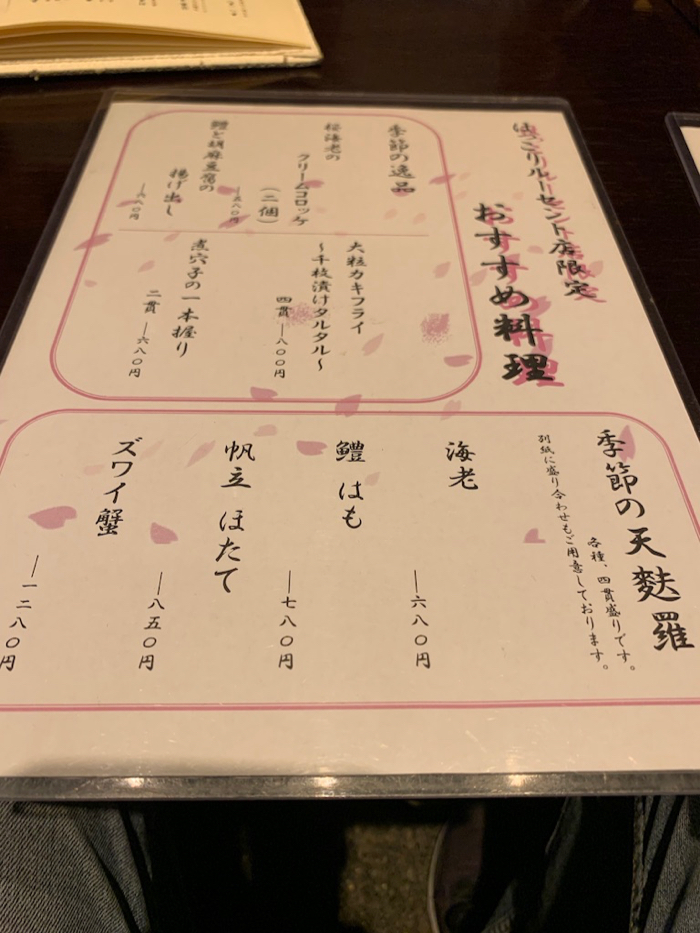 はっさりルーセント店限定
おすすめ料理
季節の逸品
桜海老の
クリームコロッケ
(二個)
―五八〇円
鱧と胡麻豆腐の
揚げ出し
―六八〇円
大粒カキフライ
～千枚漬けタルタル～
四貫 ―八〇〇円
煮穴子の一本握り
二貫 ―六八〇円
季節の天麩羅
各種、四貫盛りです。
別紙に盛り合わせもご用意しております。
海老
―六八〇円
鱧 はも
―七八〇円
帆立 ほたて
―八五〇円
ズワイ蟹
―一二八〇円